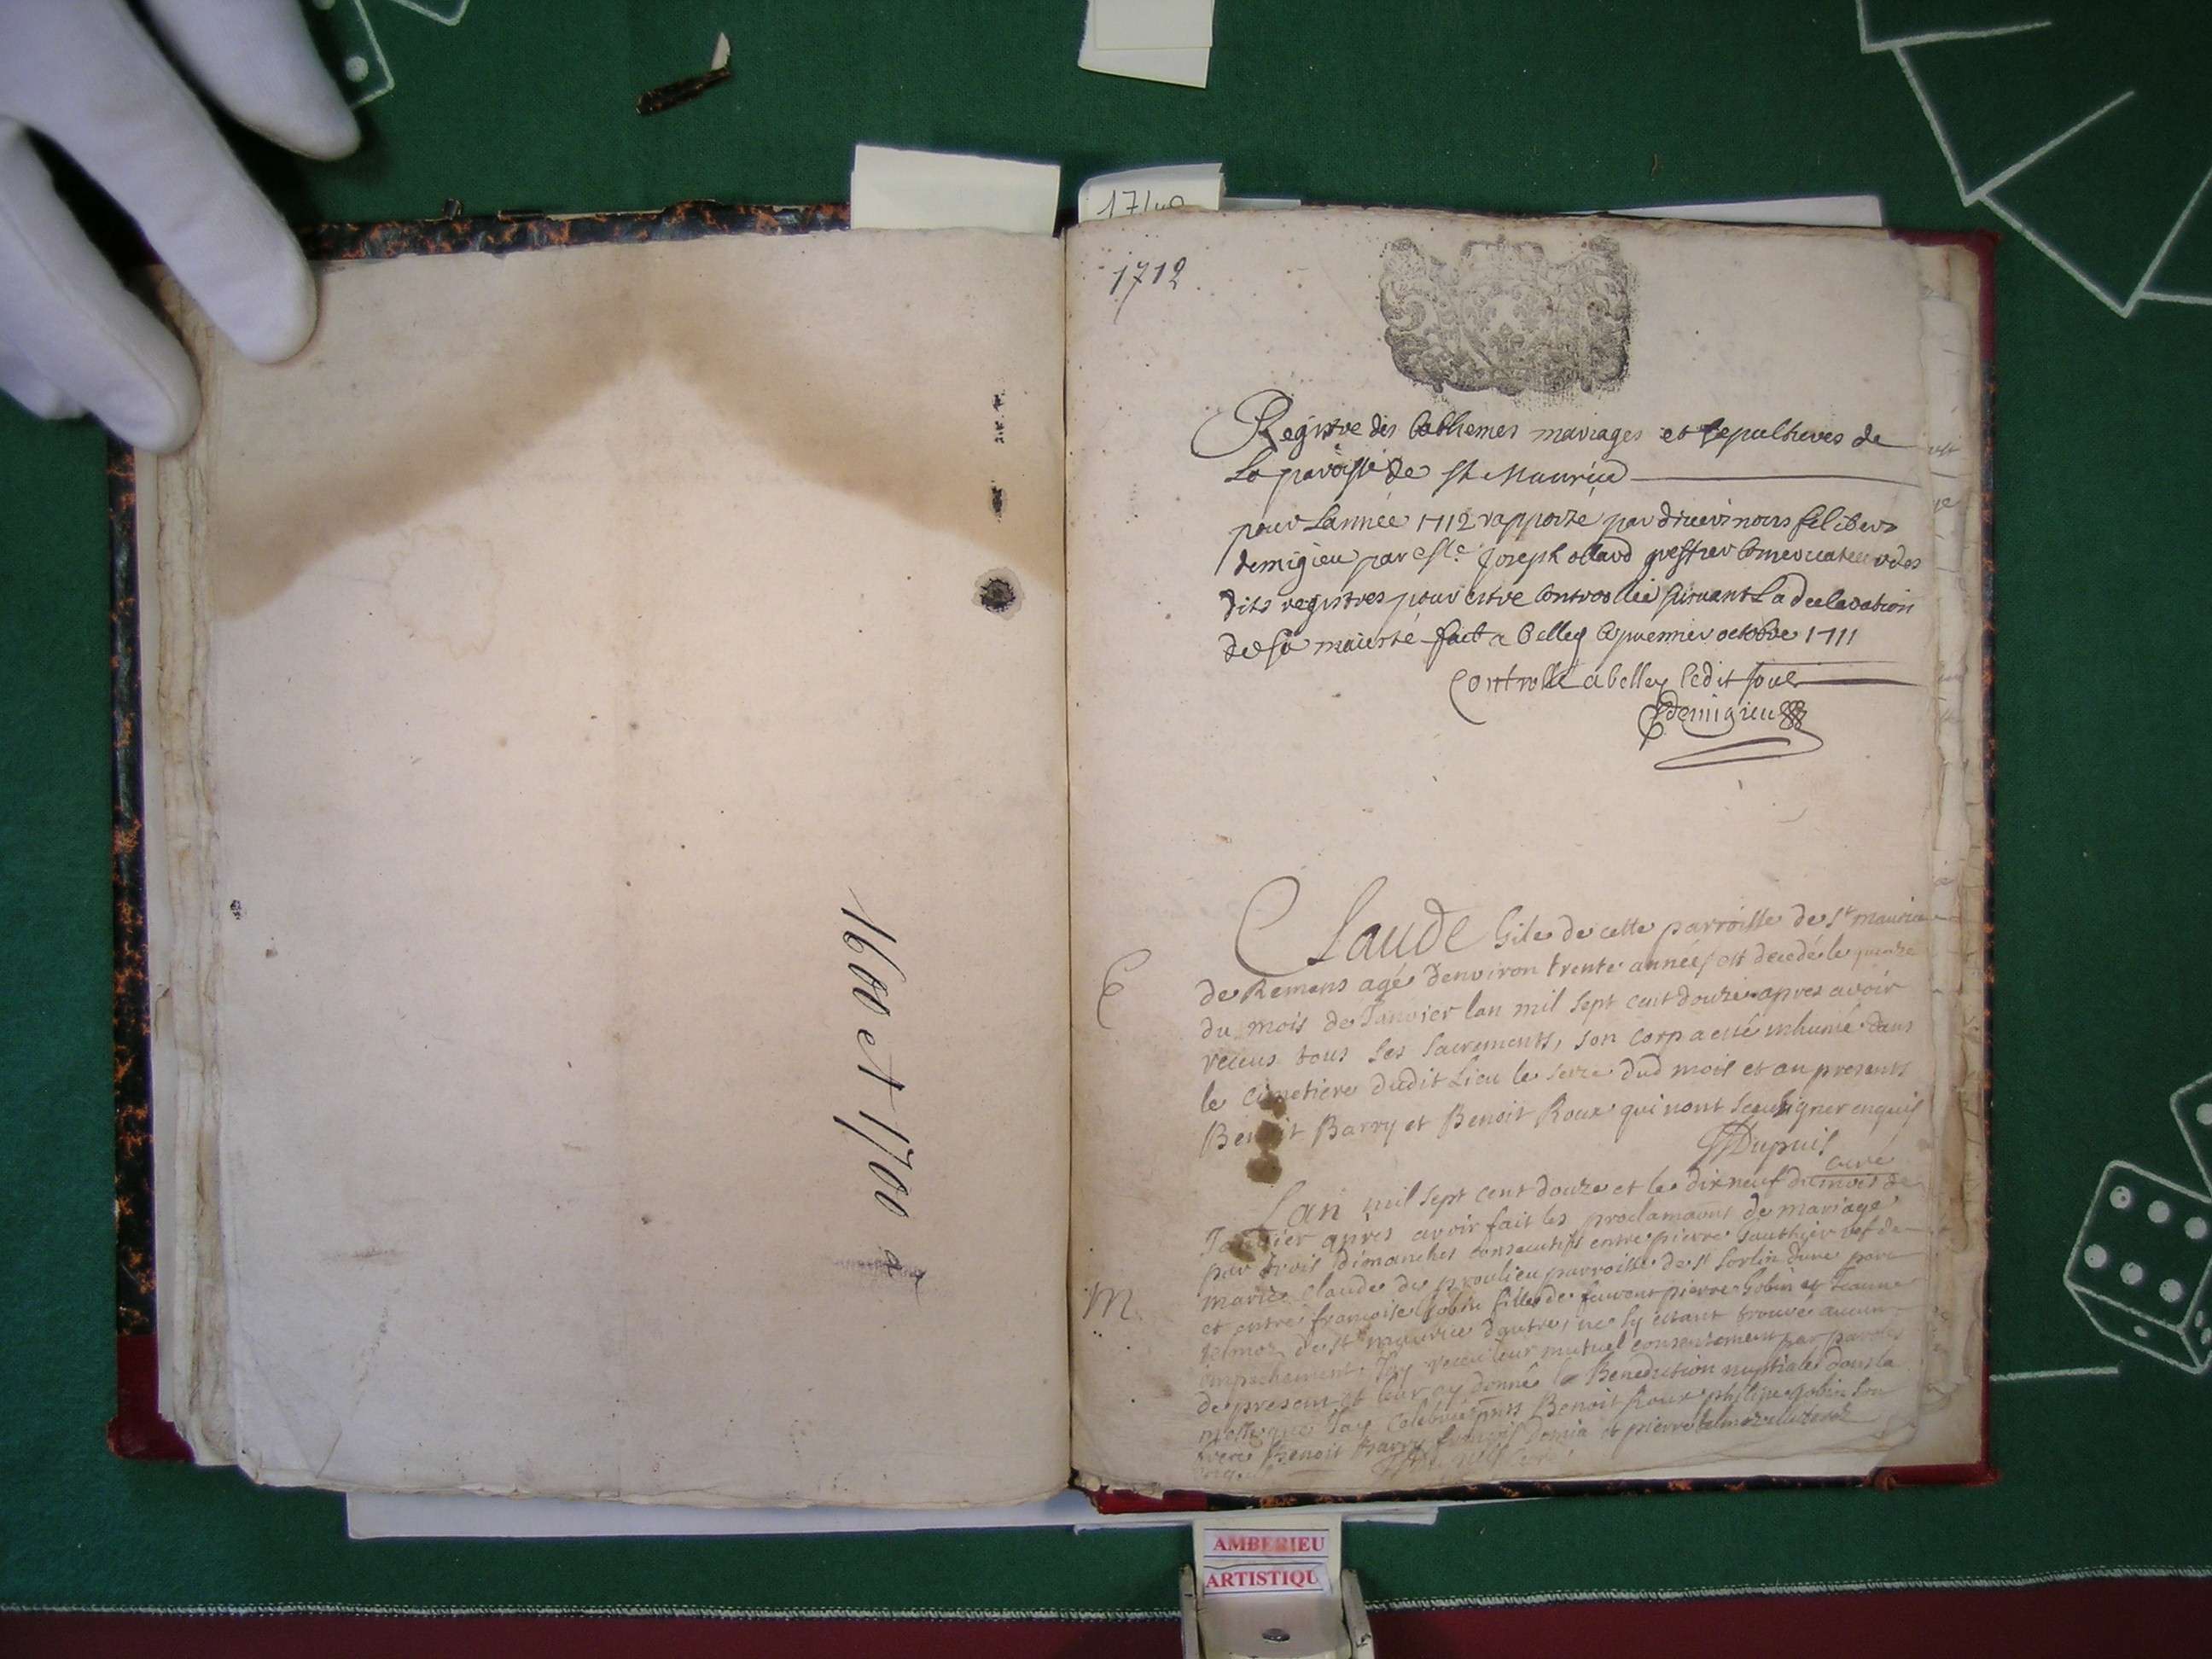 1600 et 1700
1712
Registre des bathemes mariages et sepultures de
La paroisse de St Maurice
pour Lannée 1712 rapporté par devers nous
demigieu par Joseph greffier des
dits registres pour estre controollée suivant La declaration
de sa maiesté fait a belley le premier octobre 1711
Controllé a belley ledit jour
Demigieu
E
Claude Gile de cette parroisse de st maurice
de Remens agé denviron trente années est decedé le quinze
du mois de Janvier lan mil sept cent douze apres avoir
receus tous ses sacrements, son corp a esté inhumé dans
le cimetiere dudit Lieu le seize dud mois et an presents
Benoit Barry et Benoit Roux qui nont sceu signer enquis
Dupuis
curé
Lan mil sept cent douze et le dixneuf du mois de
Janvier apres avoir fait les proclamaons de mariage
par trois dimanches consecutifs entre pierre Gauthier vef de
M
marie Claude de proulieu parroisse de st Sorlin dune part
et entre francoise Gobin fille de pierre Gobin et Jeanne
de st maurice dautre, ne sy estant trouvé aucun
empechement Jay receu leur mutuel consentement par paroles
de present et leur ay donné la Benediction nuptiale dans la
messe que Jay celebrée Benoit Roux philipe Gobin son
frere Benoit Barry françois Demia et pierre
1740
AMBERIEU
ARTISTIQU